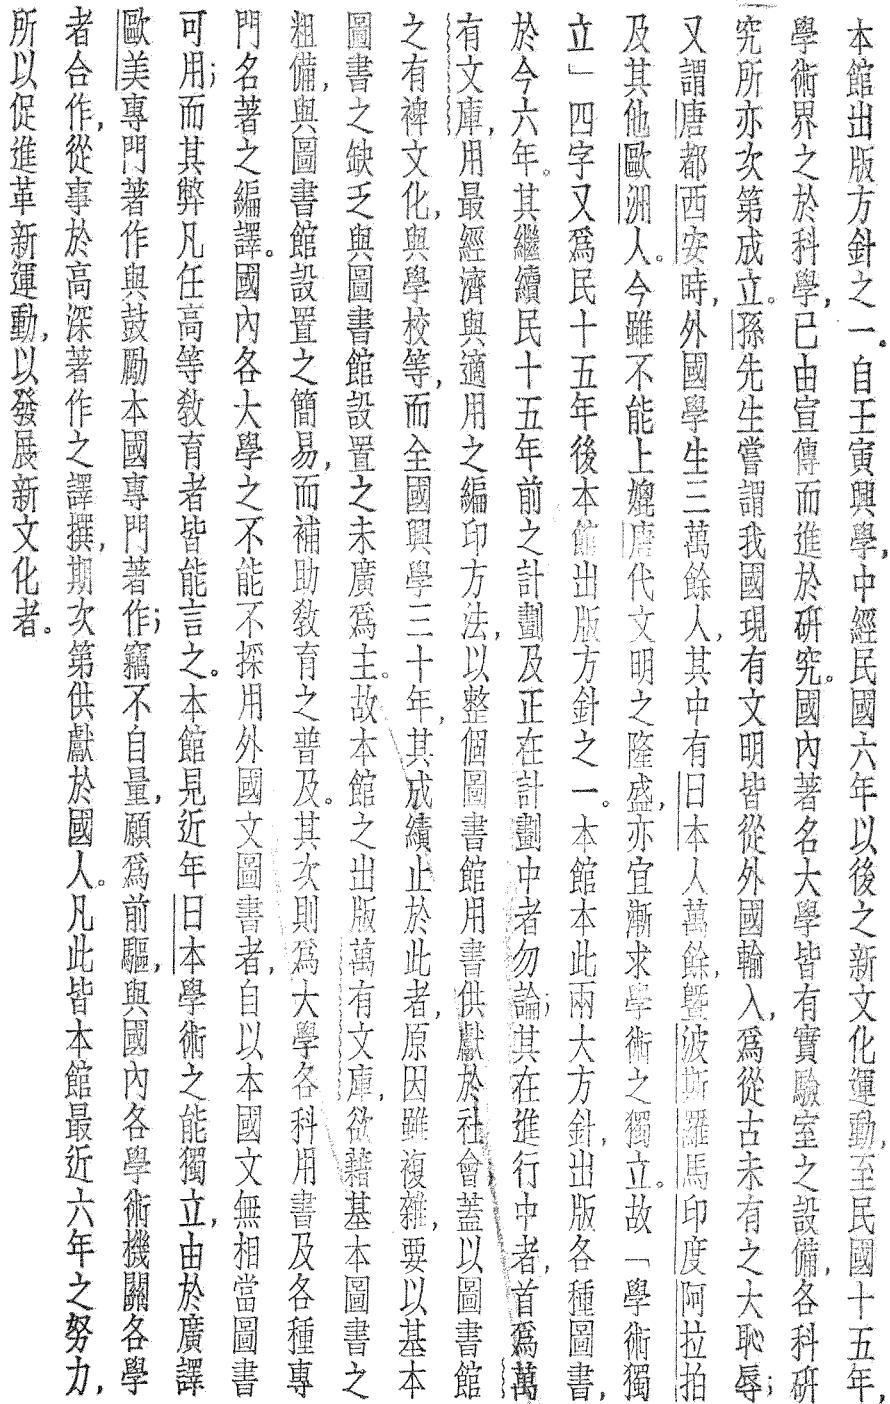 本館出版方針之一。自壬寅興學,中經民國六年以後之新文化運動,至民國十五年,
學術界之於科學,已由宣傳而進於研究。國內著名大學皆有實驗室之設備,各科研
究所亦次第成立。孫先生嘗謂我國現有文明皆從外國輸入,爲從古未有之大恥辱;
又謂唐都西安時,外國學生三萬餘人,其中有日本人萬餘,曁波斯羅馬印度阿拉拍
及其他歐洲人。今雖不能上媲唐代文明之隆盛,亦宜漸求學術之獨立。故「學術獨
立」四字又爲民十五年後本館出版方針之一。本館本此兩大方針,出版各種圖書,
於今六年。其繼續民十五年前之計劃及正在計劃中者勿論;其在進行中者,首爲萬
有文庫,用最經濟與適用之編印方法,以整個圖書館用書供獻於社會,蓋以圖書館
之有裨文化,與學校等,而全國興學三十年,其成績止於此者,原因雖複雜,要以基本
圖書之缺乏與圖書館設置之未廣爲主。故本館之出版萬有文庫,欲藉基本圖書之
粗備,與圖書館設置之簡易,而補助敎育之普及。其次則爲大學各科用書及各種專
門名著之編譯。國內各大學之不能不採用外國文圖書者,自以本國文無相當圖書
可用;而其弊凡任高等敎育者皆能言之。本館見近年日本學術之能獨立,由於廣譯
歐美專門著作與鼓勵本國專門著作;竊不自量,願爲前驅,與國內各學術機關各學
者合作,從事於高深著作之譯撰,期次第供獻於國人。凡此皆本館最近六年之努力,
所以促進革新運動,以發展新文化者。